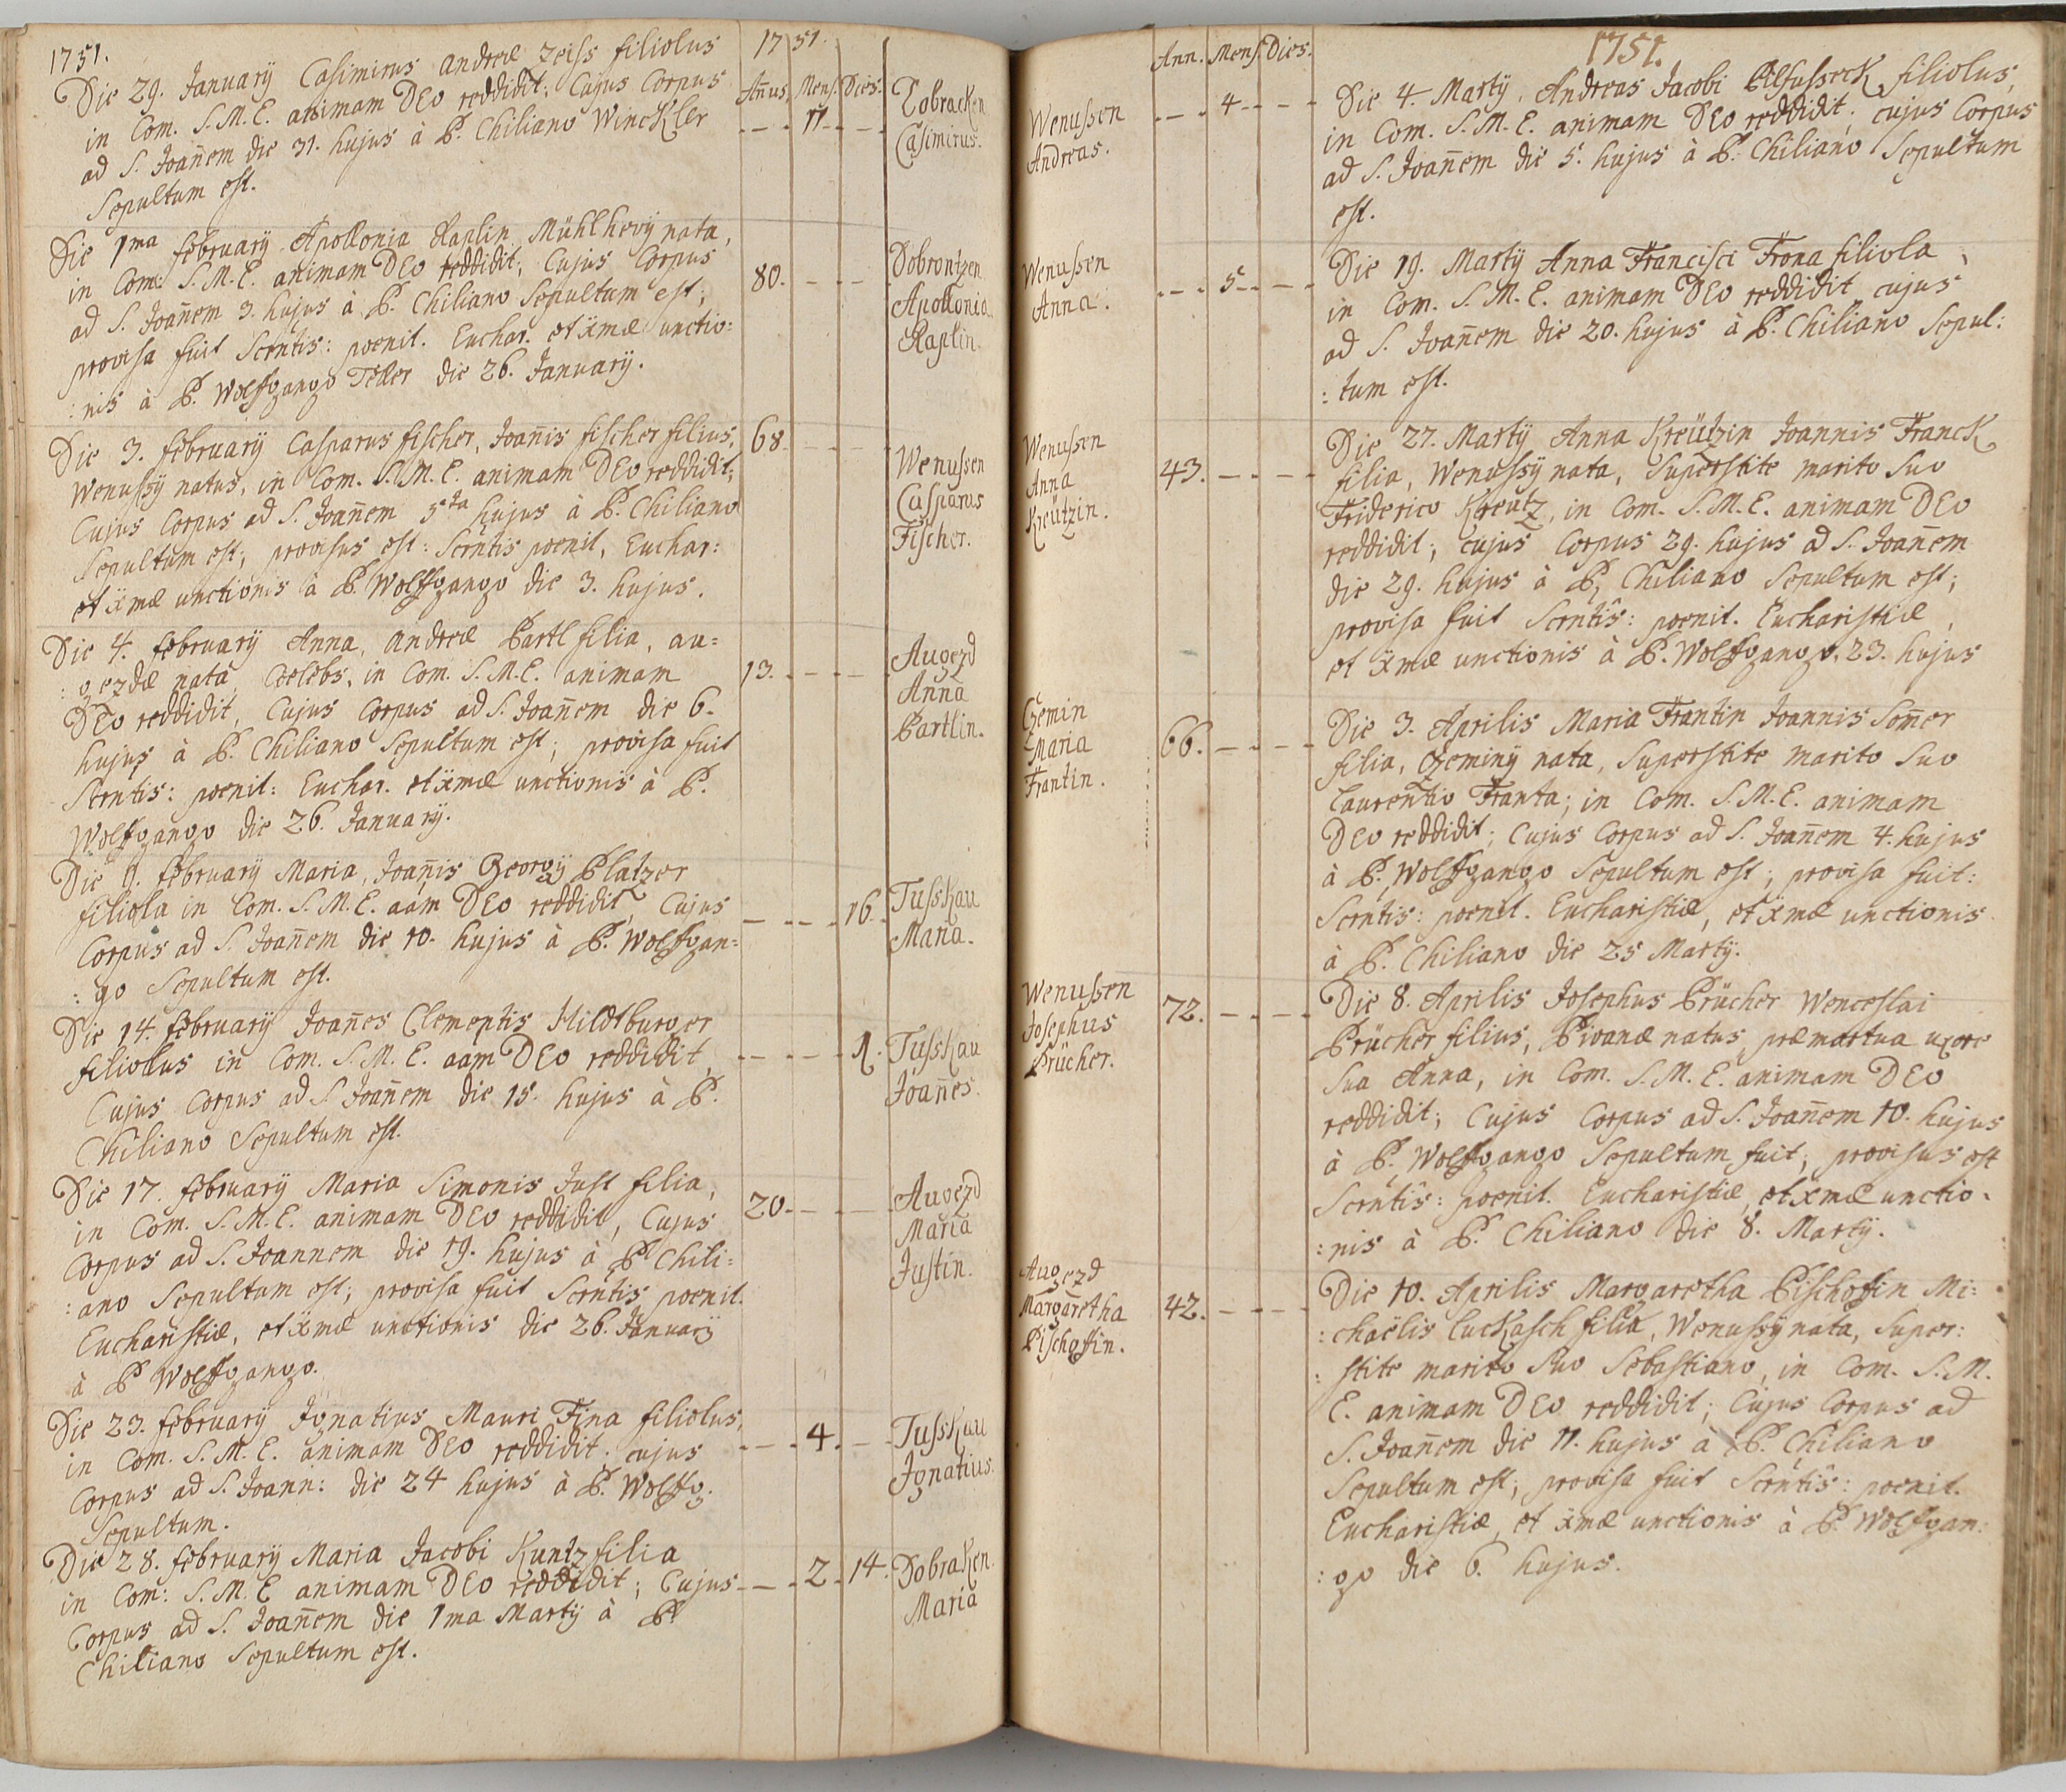 1751.
Die 29. Januarÿ Casimirus Andreæ Zeiss filiolus
in Com. S. M. E. animam DEo reddidit; Cujus Corpus
ad S. Joan̄em die 31. hujus à P. Chiliano Winckler
Sepultum est.
Die 1ma februarÿ Apollonia Raplin Mühlhevÿ nata,
in Com: S. M. E. animam DEo reddidit; Cujus Corpus
ad S. Joan̄em 3. hujus à P. Chiliano Sepultum est;
provisa fuit Scrntis: poenit. Euchar. et ẍmæ unctio:
:nis à P. Wolffgango Teller die 26. Januarÿ.
Die 3. februarÿ Casparus fischer, Joan̄is fischer filius,
Wenussÿ natus, in Com. S. M. E. animam DEo reddidit;
Cujus Corpus ad S. Joan̄em 5ta hujus à P. Chiliano
Sepultum est; provisus est: Scrntis poenit, Euchar:
et ẍmæ unctionis à P. Wolffgango die 3. hujus.
Die 4. februarÿ Anna, Andreæ Partl filia, au=
:gezdæ nata Coelebs, in Com. S. M. E. animam
DEo reddidit, Cujus Corpus ad S. Joan̄em die 6.
hujus à P. Chiliano Sepultum est; provisa fuit
Scrntis: poenit: Euchar. et ẍmæ unctionis à P.
Wolffgango die 26. Januarÿ.
Die 9. februarÿ Maria, Joan̄is Georgÿ Platzer
filiola in Com. S. M. E. aam DEo reddidit, Cujus
Corpus ad S. Joan̄em die 10. hujus à P. Wolffgan=
:go Sepultum est.
Die 14. februarÿ Joan̄es Clementis Hildtburger
filiolus in Com. S. M. E. aam DEo reddidit,
Cujus Corpus ad S Joan̄em die 15. hujus à P.
Chiliano Sepultum est.
Die 17. februarÿ Maria Simonis Just filia,
in Com. S. M. E. animam DEo reddidit, Cujus
Corpus ad S. Joannem die 19. hujus à P Chili=
:ano Sepultum est; provisa fuit Scrntis poenit.
Eucharistiæ, et ẍmæ unctionis die 26. Januarÿ
à P Wolffgango.
Die 23. februarÿ Ignatius Mauri Fina filiolus,
in Com. S. M. E. animam DEo reddidit; cujus
Corpus ad S. Joann: die 24 hujus à P. Wolffg.
Sepultum.
Die 28. februarÿ Maria Jacobi Kuntz filia
in Com: S. M. E animam DEo reddidit; Cujus
Corpus ad S. Joan̄em die 1ma Martÿ à P
Chiliano Sepultum est.
1751.
An̄us. Mens. Dies.
11 Dobracken
Casimirus.
80. Dobrontzen
Apollonia
Raplin.
68. Wenussen
Casparus
Fischer.
13. Augezd
Anna
Partlin.
16. Tusskau
Maria.
1. Tusskau
Joan̄es.
20. Augezd
Maria
Justin.
4. Tusskau
Ignatius.
2. 14. Dobraken
Maria
Ann. Mens. Dies.
Wenussen 4.
Andreas.
Wenussen 5.
Anna.
Wenussen
Anna 43.
Kreützin.
Czemin
Maria 66.
Frantin.
Wenussen
Josephus 72.
Prücher.
Augezd
Margaretha 42.
Pischoffin.
1751.
Die 4. Martÿ. Andreas Jacobi filiolus,
in Com. S. M. E. animam DEo reddidit; cujus Corpus
ad S. Joan̄em die 5. hujus à P. Chiliano Sepultum
est.
Die 19. Martÿ Anna Francisci Frona filiola,
in Com. S. M. E. animam DEo reddidit cujus
ad S. Joan̄em die 20. hujus à P. Chiliano Sepul:
:tum est.
Die 27. Martÿ Anna Kreützin Joannis Franck
filia, Wenussÿ nata, Superstite marito Suo
Friderico Kreütz, in Com. S. M. E. animam DEo
reddidit; cujus Corpus 29. hujus ad S. Joan̄em
die 29. hujus à P. Chiliano Sepultum est;
provisa fuit Scrntis: poenit. Eucharistiæ,
et ẍmæ unctionis à P. Wolffgango, 23. hujus
Die 3. Aprilis Maria Frantin Joannis Som̄er
filia, Czeminÿ nata, Superstite marito Suo
Laurentio Franta; in Com. S. M. E. animam
DEo reddidit; Cujus Corpus ad S. Joan̄em 4. hujus
à P. Wolffgango Sepultum est; provisa fuit:
Scrntis: poenit. Eucharistiæ, et ẍmæ unctionis
à P. Chiliano die 25 Martÿ.
Die 8. Aprilis Josephus Prücher Wenceslai
Prücher filius, Pivanæ natus, præmortua uxore
Sua Anna, in Com. S. M. E. animam DEo
reddidit; Cujus Corpus ad S. Joan̄em 10. hujus
à P. Wolffgango Sepultum fuit; provisus est
Scrntis: poenit. Eucharistiæ, et xmæ unctio=
:nis à P. Chiliano die 8. Martÿ.
Die 10. Aprilis Margaretha Pischoffin Mi=
:chaëlis Luckasch filia, Wenussÿ nata, Super:
:stite marito Suo Sebastiano, in Com. S. M.
E. animam DEo reddidit; Cujus Corpus ad
S. Joan̄em die 11. hujus à P. Chiliano
Sepultum est; provisa fuit Scrntis: poenit.
Eucharistiæ, et ẍmæ unctionis à P. Wolffgan:
:go die 6. hujus.